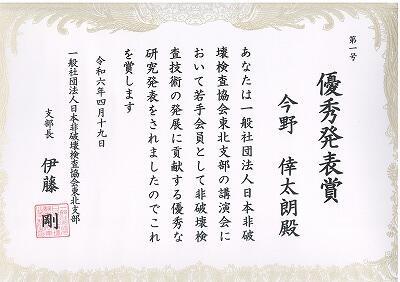 第一号
優秀発表賞
今野 倖太朗殿
あなたは一般社団法人日本非破
壊検査協会東北支部の講演会に
おいて若手会員として非破壊検
査技術の発展に貢献する優秀な
研究発表をされましたのでこれ
を賞します
令和六年四月十九日
一般社団法人日本非破壊検査協会東北支部
支部長 伊藤 剛